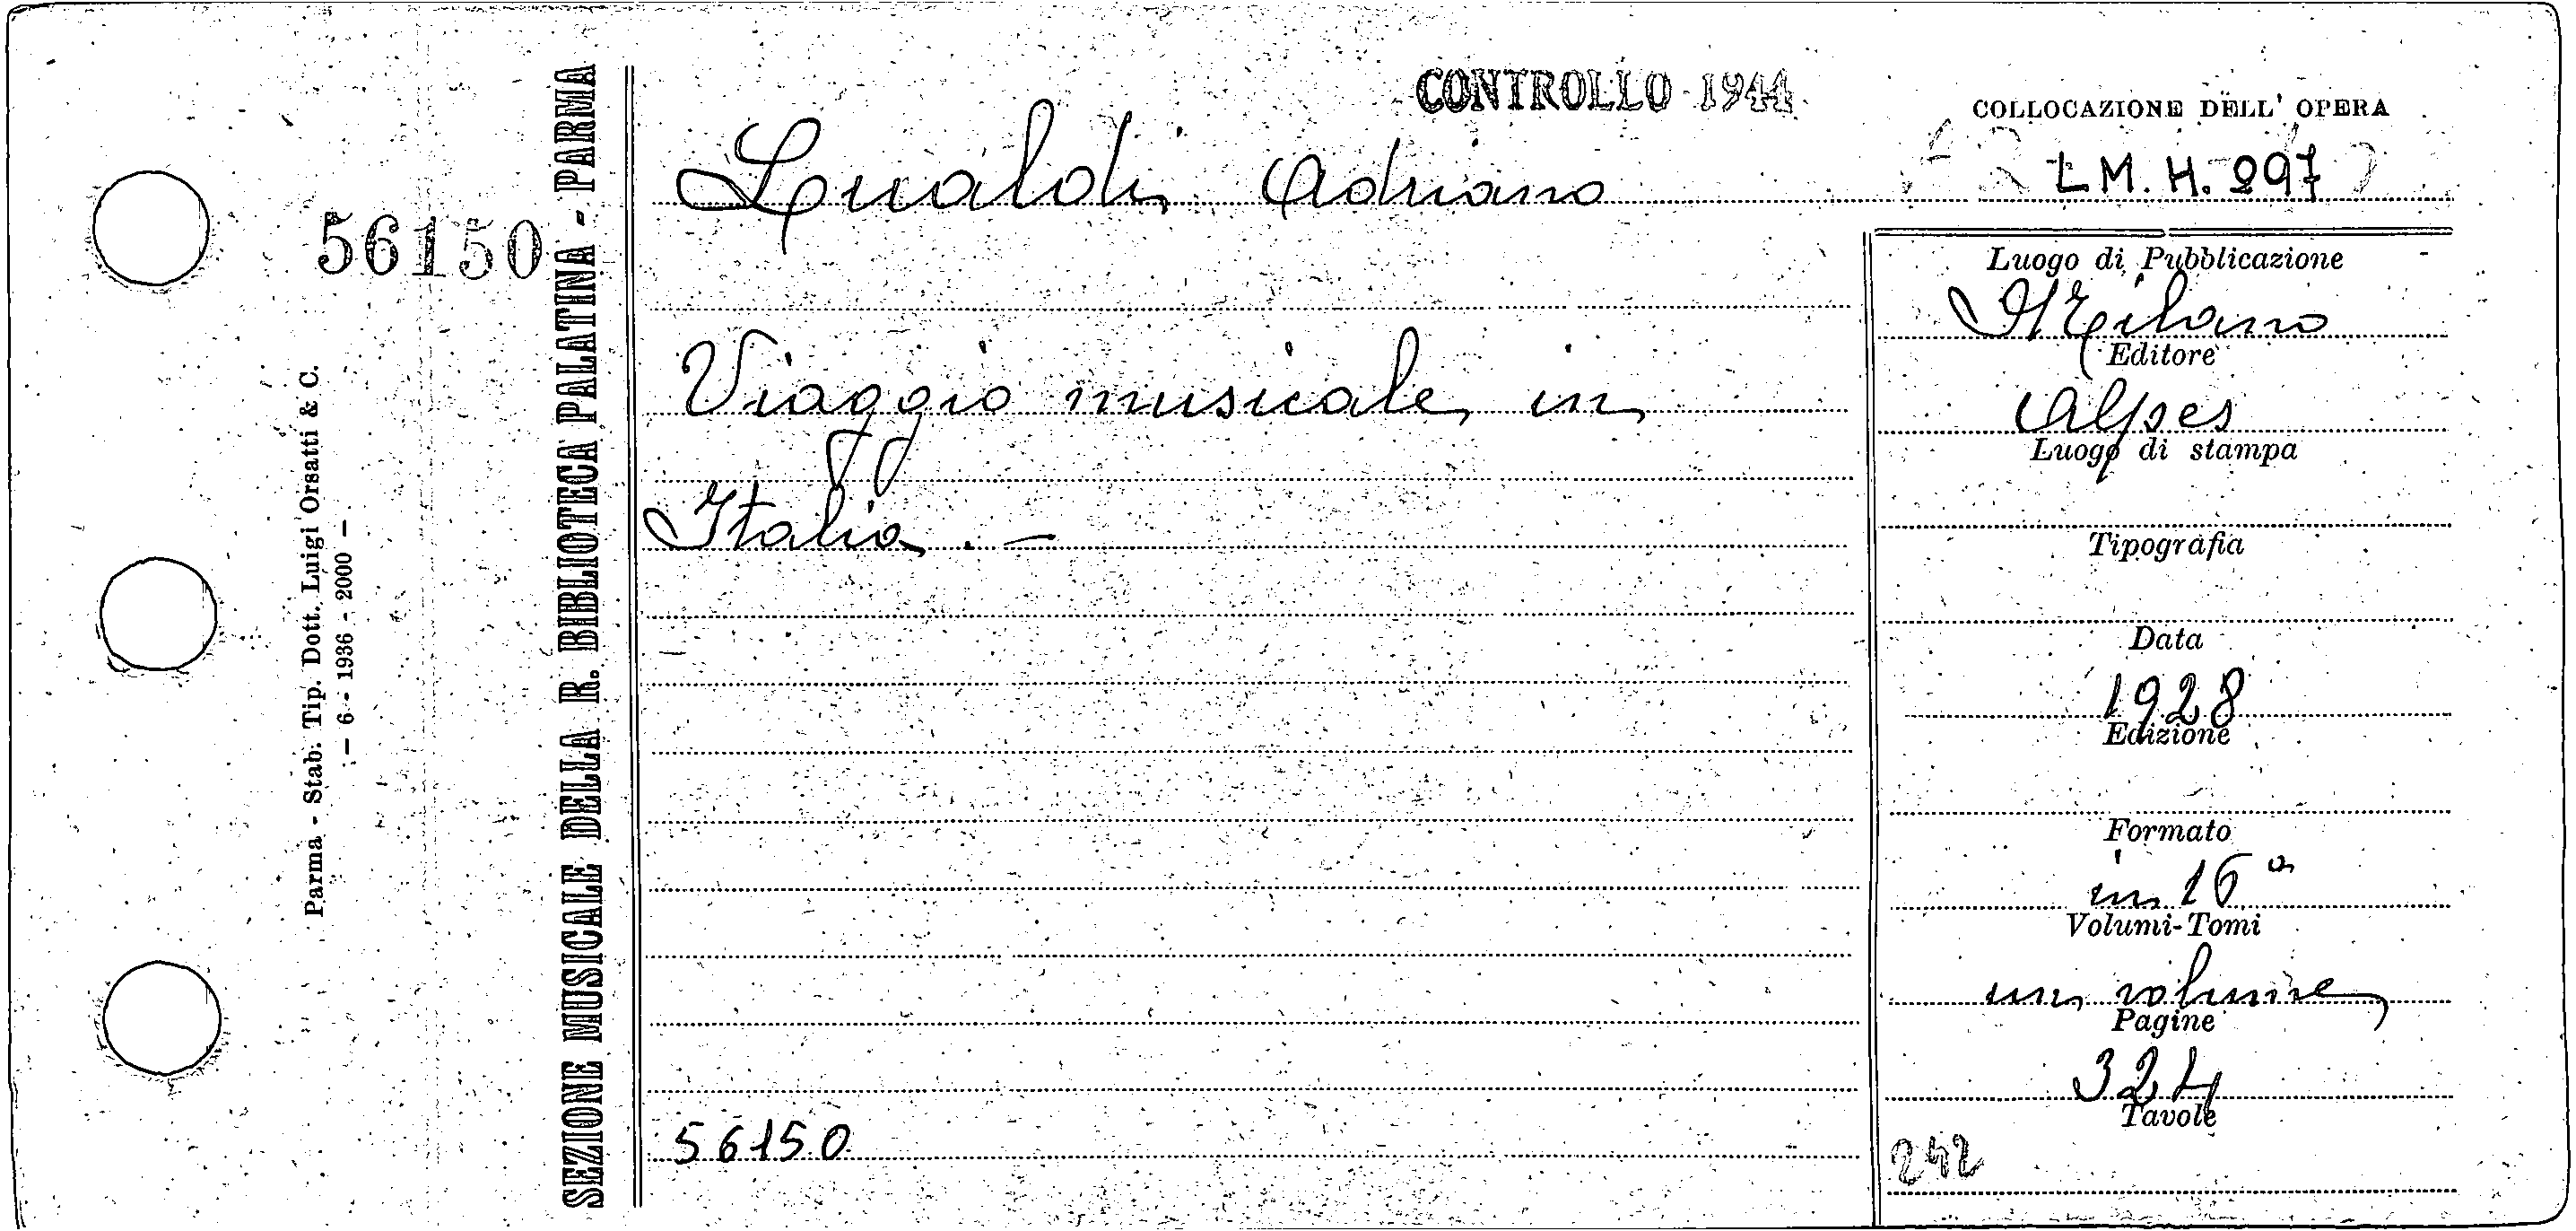 CONTROLLO 1944
COLLOCAZIONE DELL' OPERA
LM. H. 297
Lualdi, Adriano
56150
Luogo di Pubblicazione
Milano
Editore
Viaggio musicale in
Alpes
Luogo di stampa
Italia. —
Tipografia
Data
1928
Edizione
Formato
in 16°
Volumi-Tomi
un volume
Pagine
324
Tavole
56150
242
Parma - Stab. Tip. Dott. Luigi Orsatti & C.
— 6 - 1936 - 2000 —
SEZIONE MUSICALE DELLA R. BIBLIOTECA PALATINA - PARMA